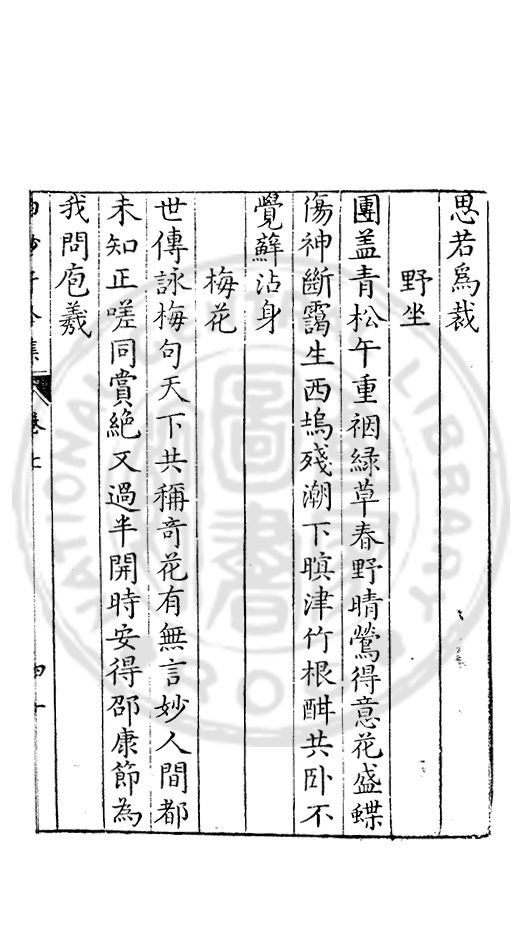 思若爲裁
野坐
團盖青松午重裀緑草春野晴鶯得意花盛蝶
傷神斷靄生西塢殘潮下暝津竹根酣共卧不
覺蘚沾身
梅花
世傳詠梅句天下共稱竒花有無言妙人間都
未知正嗟同賞絶又過半開時安得邵康節為
我問庖羲
集 卷上
NATIONAL CENTRAL LIBRARY
圖書